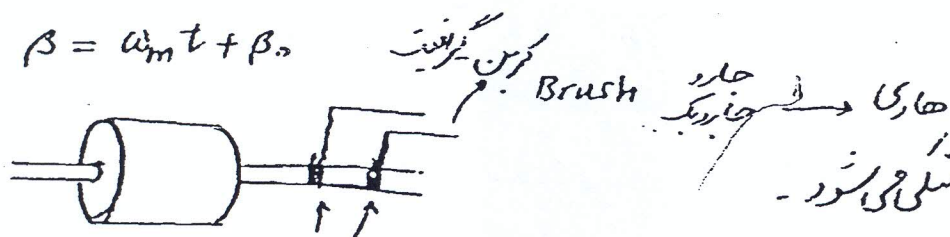 β = ω_m t + β₀
کربن گرافیت
Brush
جارو
جاروبک
هادی
می‌شود -